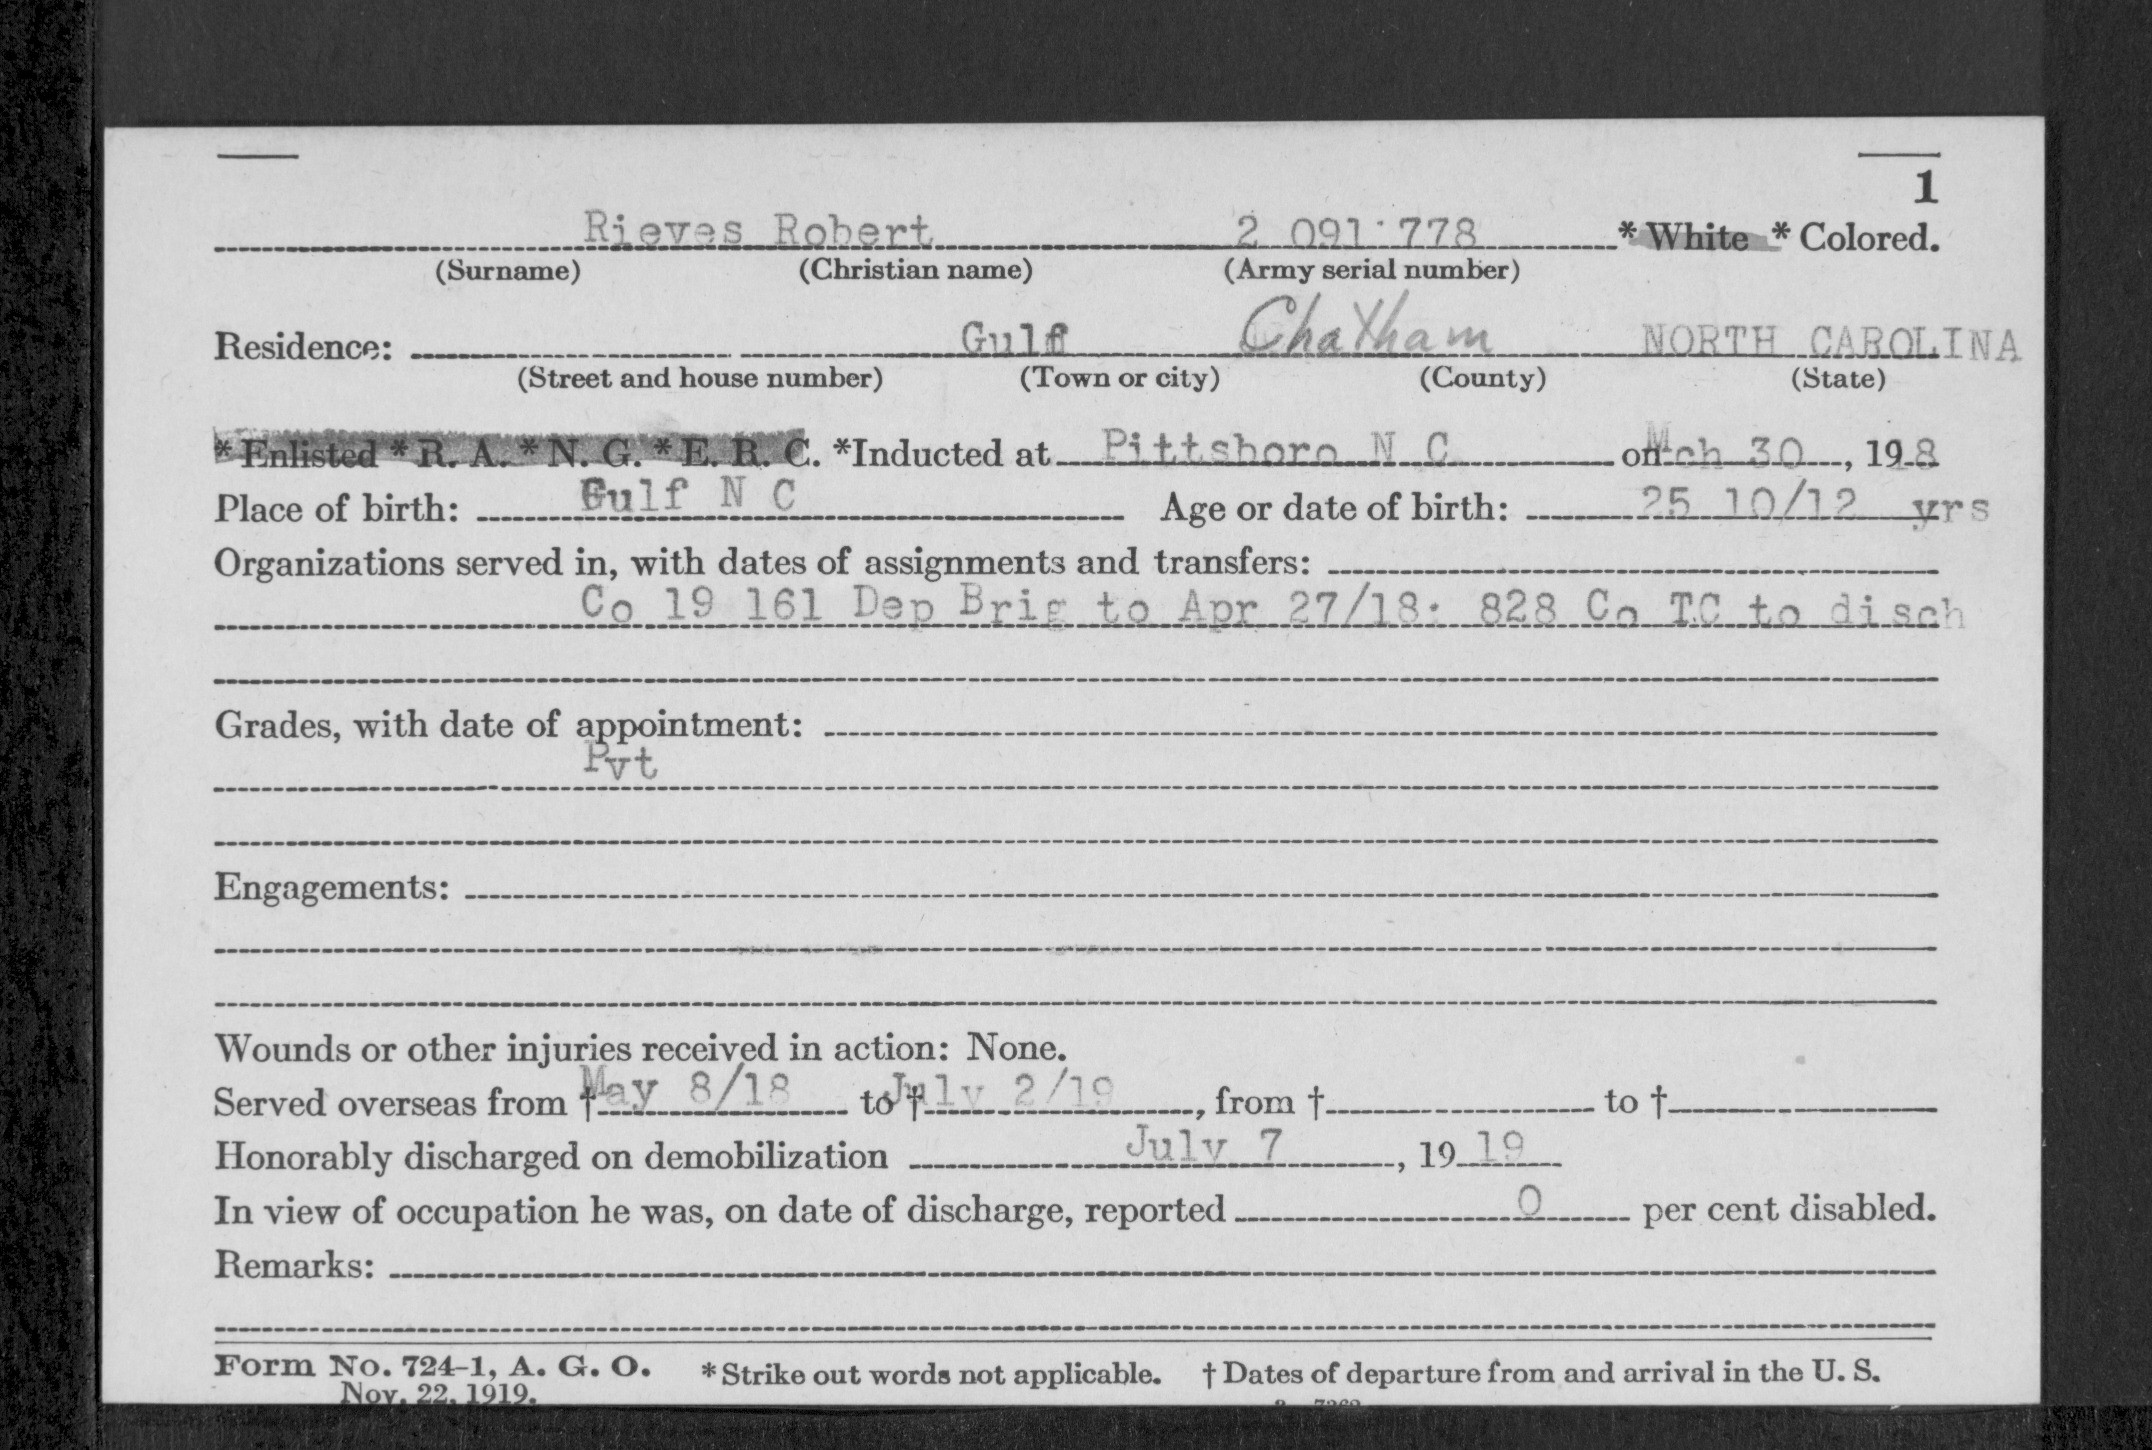 1
Rieves Robert 2 091 778 * White * Colored.
(Surname) (Christian name) (Army serial number)
Residence: Gulf Chatham NORTH CAROLINA
(Street and house number) (Town or city) (County) (State)
* Enlisted * R. A. * N. G. * E. R. C. *Inducted at Pittsboro N C on Mch 30, 19 8
Place of birth: Gulf N C Age or date of birth: 25 10/12 yrs
Organizations served in, with dates of assignments and transfers:
Co 19 161 Dep Brig to Apr 27/18: 828 Co TC to disch
Grades, with date of appointment:
Pvt
Engagements:
Wounds or other injuries received in action: None.
Served overseas from † May 8/18 to † July 2/19, from † to †
Honorably discharged on demobilization July 7, 19 19
In view of occupation he was, on date of discharge, reported 0 per cent disabled.
Remarks:
Form No. 724-1, A. G. O. * Strike out words not applicable. † Dates of departure from and arrival in the U. S.
Nov. 22, 1919.